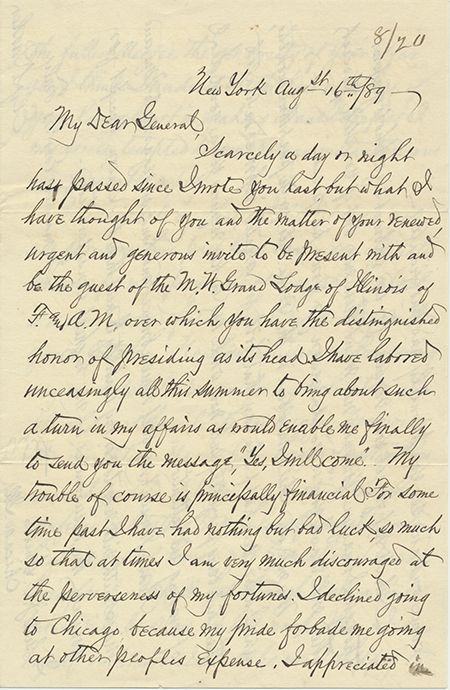 8/20
New York Augst 16th/89 —
My Dear General,
Scarcely a day or night
has passed since I wrote you last but what I
have thought of you and the matter of your renewed,
urgent and generous invite to be present with and
be the guest of the M.W. Grand Lodge of Illinois of
F. & A.M. over which you have the distinguished
honor of presiding as its head. I have labored
unceasingly all this summer to bring about such
a turn in my affairs as would enable me finally
to send you the message, "Yes, I will come". My
trouble of course is principally financial. For some
time past I have had nothing but bad luck, so much
so that at times I am very much discouraged at
the perverseness of my fortunes. I declined going
to Chicago because my pride forbade me going
at other peoples expense. I appreciated